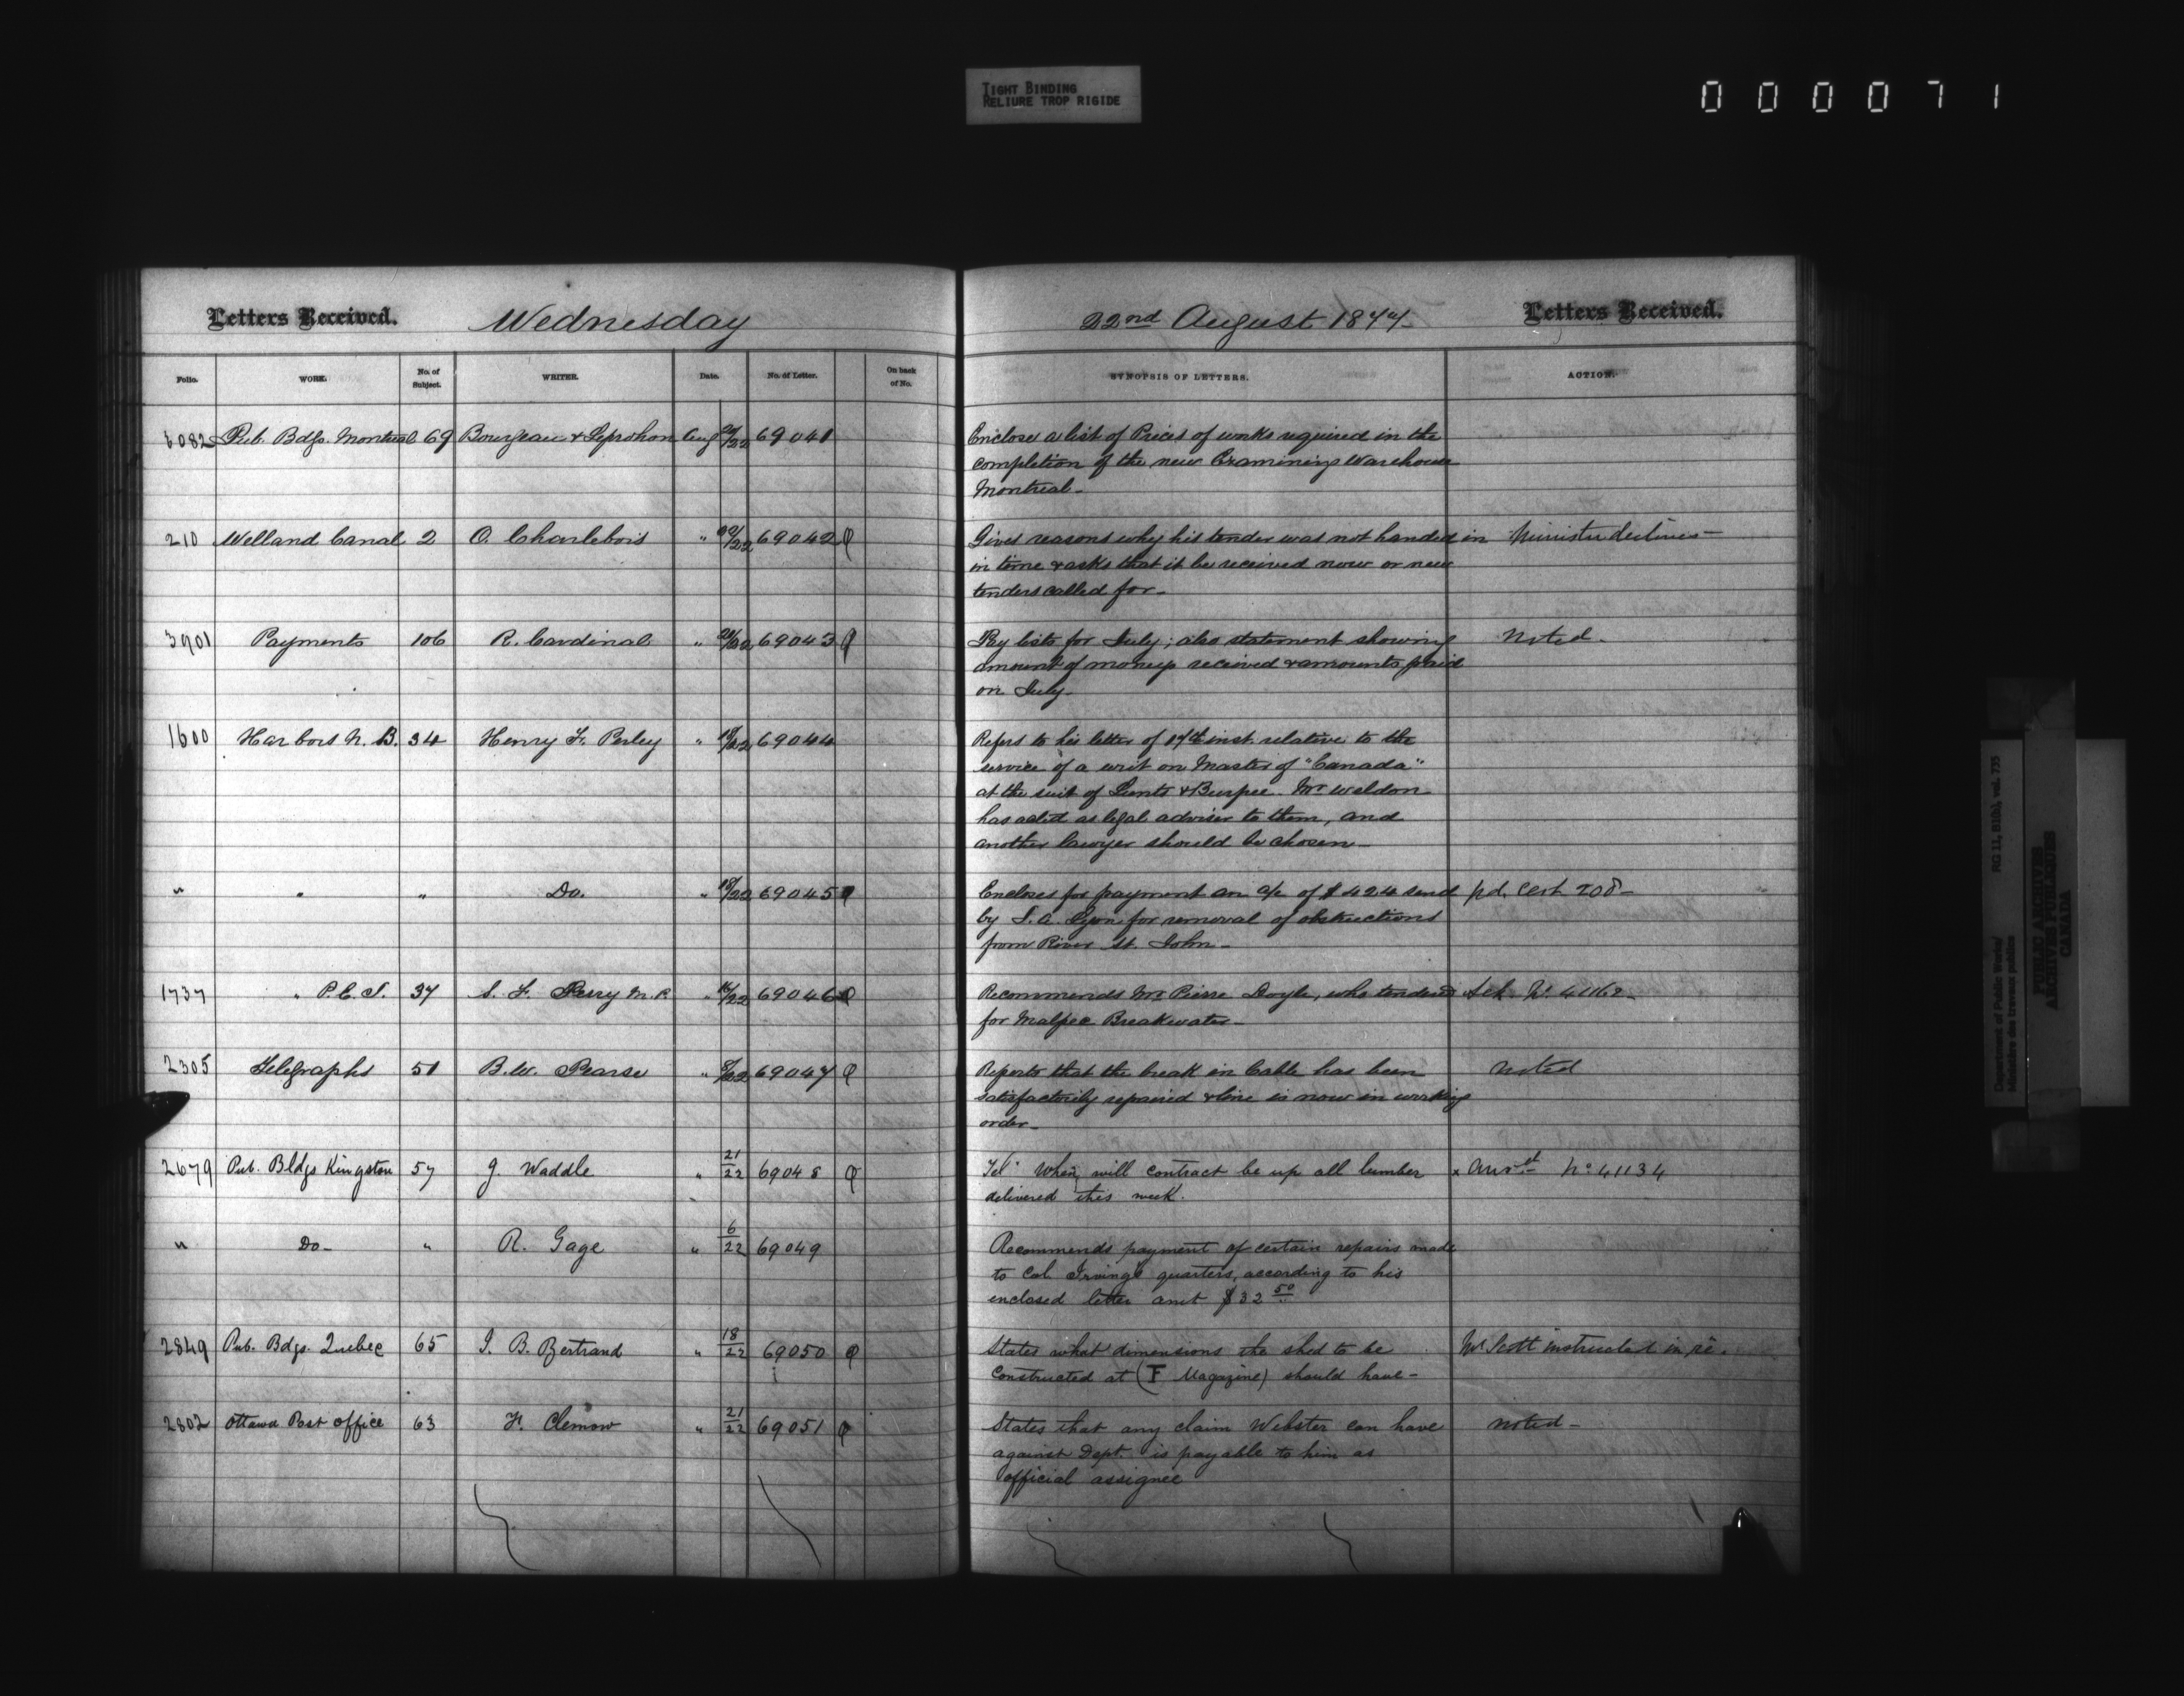 TIGHT BINDING
RELIURE TROP RIGIDE
000071
Letters Received. Wednesday 22nd August 1877. Letters Received.
Folio. WORK. No. of Subject. WRITER. Date. No. of Letter. On back of No. SYNOPSIS OF LETTERS. ACTION.
6082 Pub. Bdgs. Montreal 69 Bourgeau & Leprohon Aug 69041 Enclose a list of Prices of works required in the
completion of the new Examining Warehouse
Montreal-
210 Welland Canal 2 O. Charlebois " 20/22 69042 Gives reasons why his tender was not handed in Minister declines-
in time & asks that it be received now or new
tenders called for-
3901 Payments 106 R. Cardinal " 69043 Pay lists for July; also statement showing Noted-
amount of moneys received & amounts paid
on July-
1600 Harbors N. B. 34 Henry F. Perley " 18/22 69044 Refers to his letter of 17th inst. relative to the
service of a writ on Master of "Canada"
at the suit of Lunts & Burpee. Mr Weldon
has acted as legal adviser to them, and
another lawyer should be chosen-
" " " Do. " 18/22 69045 Encloses for payment an a/c of $424 send pd. Cert 208-
by for removal of obstructions
from River St. John-
1737 " P.E.I. 37 S. F. Perry M.P. " 16/22 69046 Recommends Mr Pierre Doyle, who tendered Ack. No. 41162-
for Malpec Breakwater-
2305 Telegraphs 51 B.W. Pearse " 8/22 69047 Reports that the break in Cable has been Noted
satisfactorily repaired & line is now in working
order-
2679 Pub. Bldgs Kingston 57 J Waddle " 21/22 69048 Tel. When will contract be up all lumber x Ansd No. 41134
delivered this week.
" Do- " R. Gage " 6/22 69049 Recommends payment of certain repairs made
to Col. Irving's quarters, according to his
enclosed letter amt $32 50
2849 Pub. Bdgs. Quebec 65 J. B. Bertrand " 18/22 69050 States what dimensions the shed to be Mr Scott instructed in re.
constructed at (F Magazine) should have-
2802 Ottawa Post Office 63 F. Clemow " 21/22 69051 States that any claim Webster can have Noted-
against Dept. is payable to him as
official assignee
Department of Public Works/ RG 11, B1(b), vol. 735
Ministère des travaux publics
PUBLIC ARCHIVES
ARCHIVES PUBLIQUES
CANADA